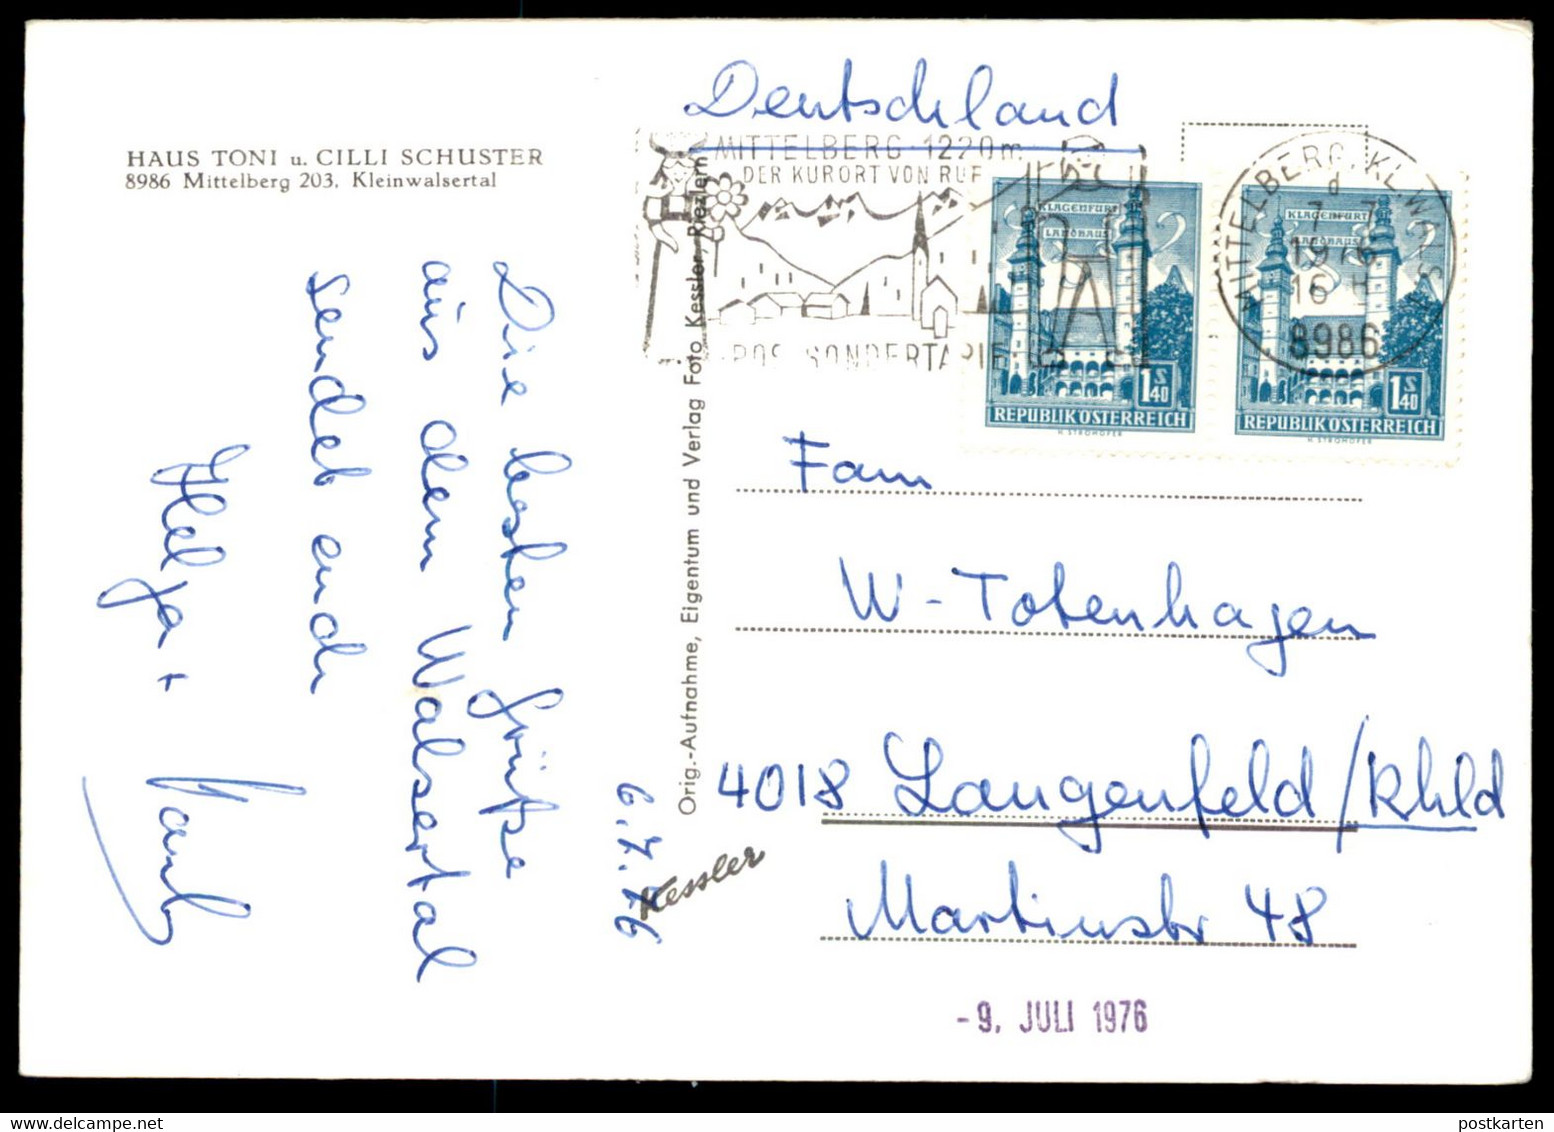 HAUS TONI u. CILLI SCHUSTER
8986 Mittelberg 203, Kleinwalsertal
Die besten Grüße
aus dem Walsertal
sendet euch
Helga +
6.7.76
Orig.-Aufnahme, Eigentum und Verlag Foto Kessler, Riezlern
Kessler
Deutschland
MITTELBERG 1220 m
DER KURORT VON RUF
POST SONDERTARIF
KLAGENFURT
LANDHAUS
1 S 40
REPUBLIK ÖSTERREICH
H. STROHOFER
KLAGENFURT
LANDHAUS
1 S 40
REPUBLIK ÖSTERREICH
H. STROHOFER
MITTELBERG, KL. WALS
d
7.-7
1976
16
8986
Fam
W-Totenhagen
4018 Langenfeld/Rhld
Martinstr 48
-9. JULI 1976
postkarten